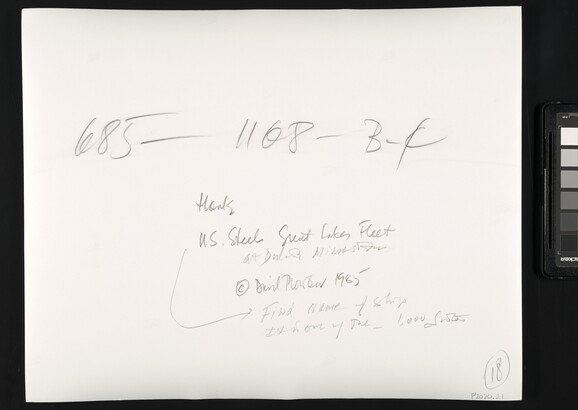 685 — 1108 — B-
U.S. Steels Great Lakes Fleet
at Duluth Minnesota
© David Plowden 1985
Find name of ship
one of the 1,000 footers
18
P2020.21